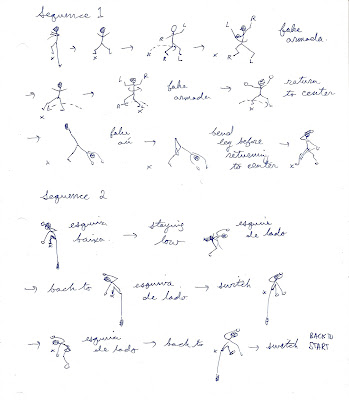 Sequence 1
L
R
R
L
R
L
fake
armada
L
R
L
R
fake
armada
L
R
return
to center
fake
aú
bend
leg before
returning
to center
Sequence 2
esquiva
baixa
staying
low
esquiva
de lado
back to
esquiva
de lado
switch
esquiva
de lado
back to
switch
BACK TO
START